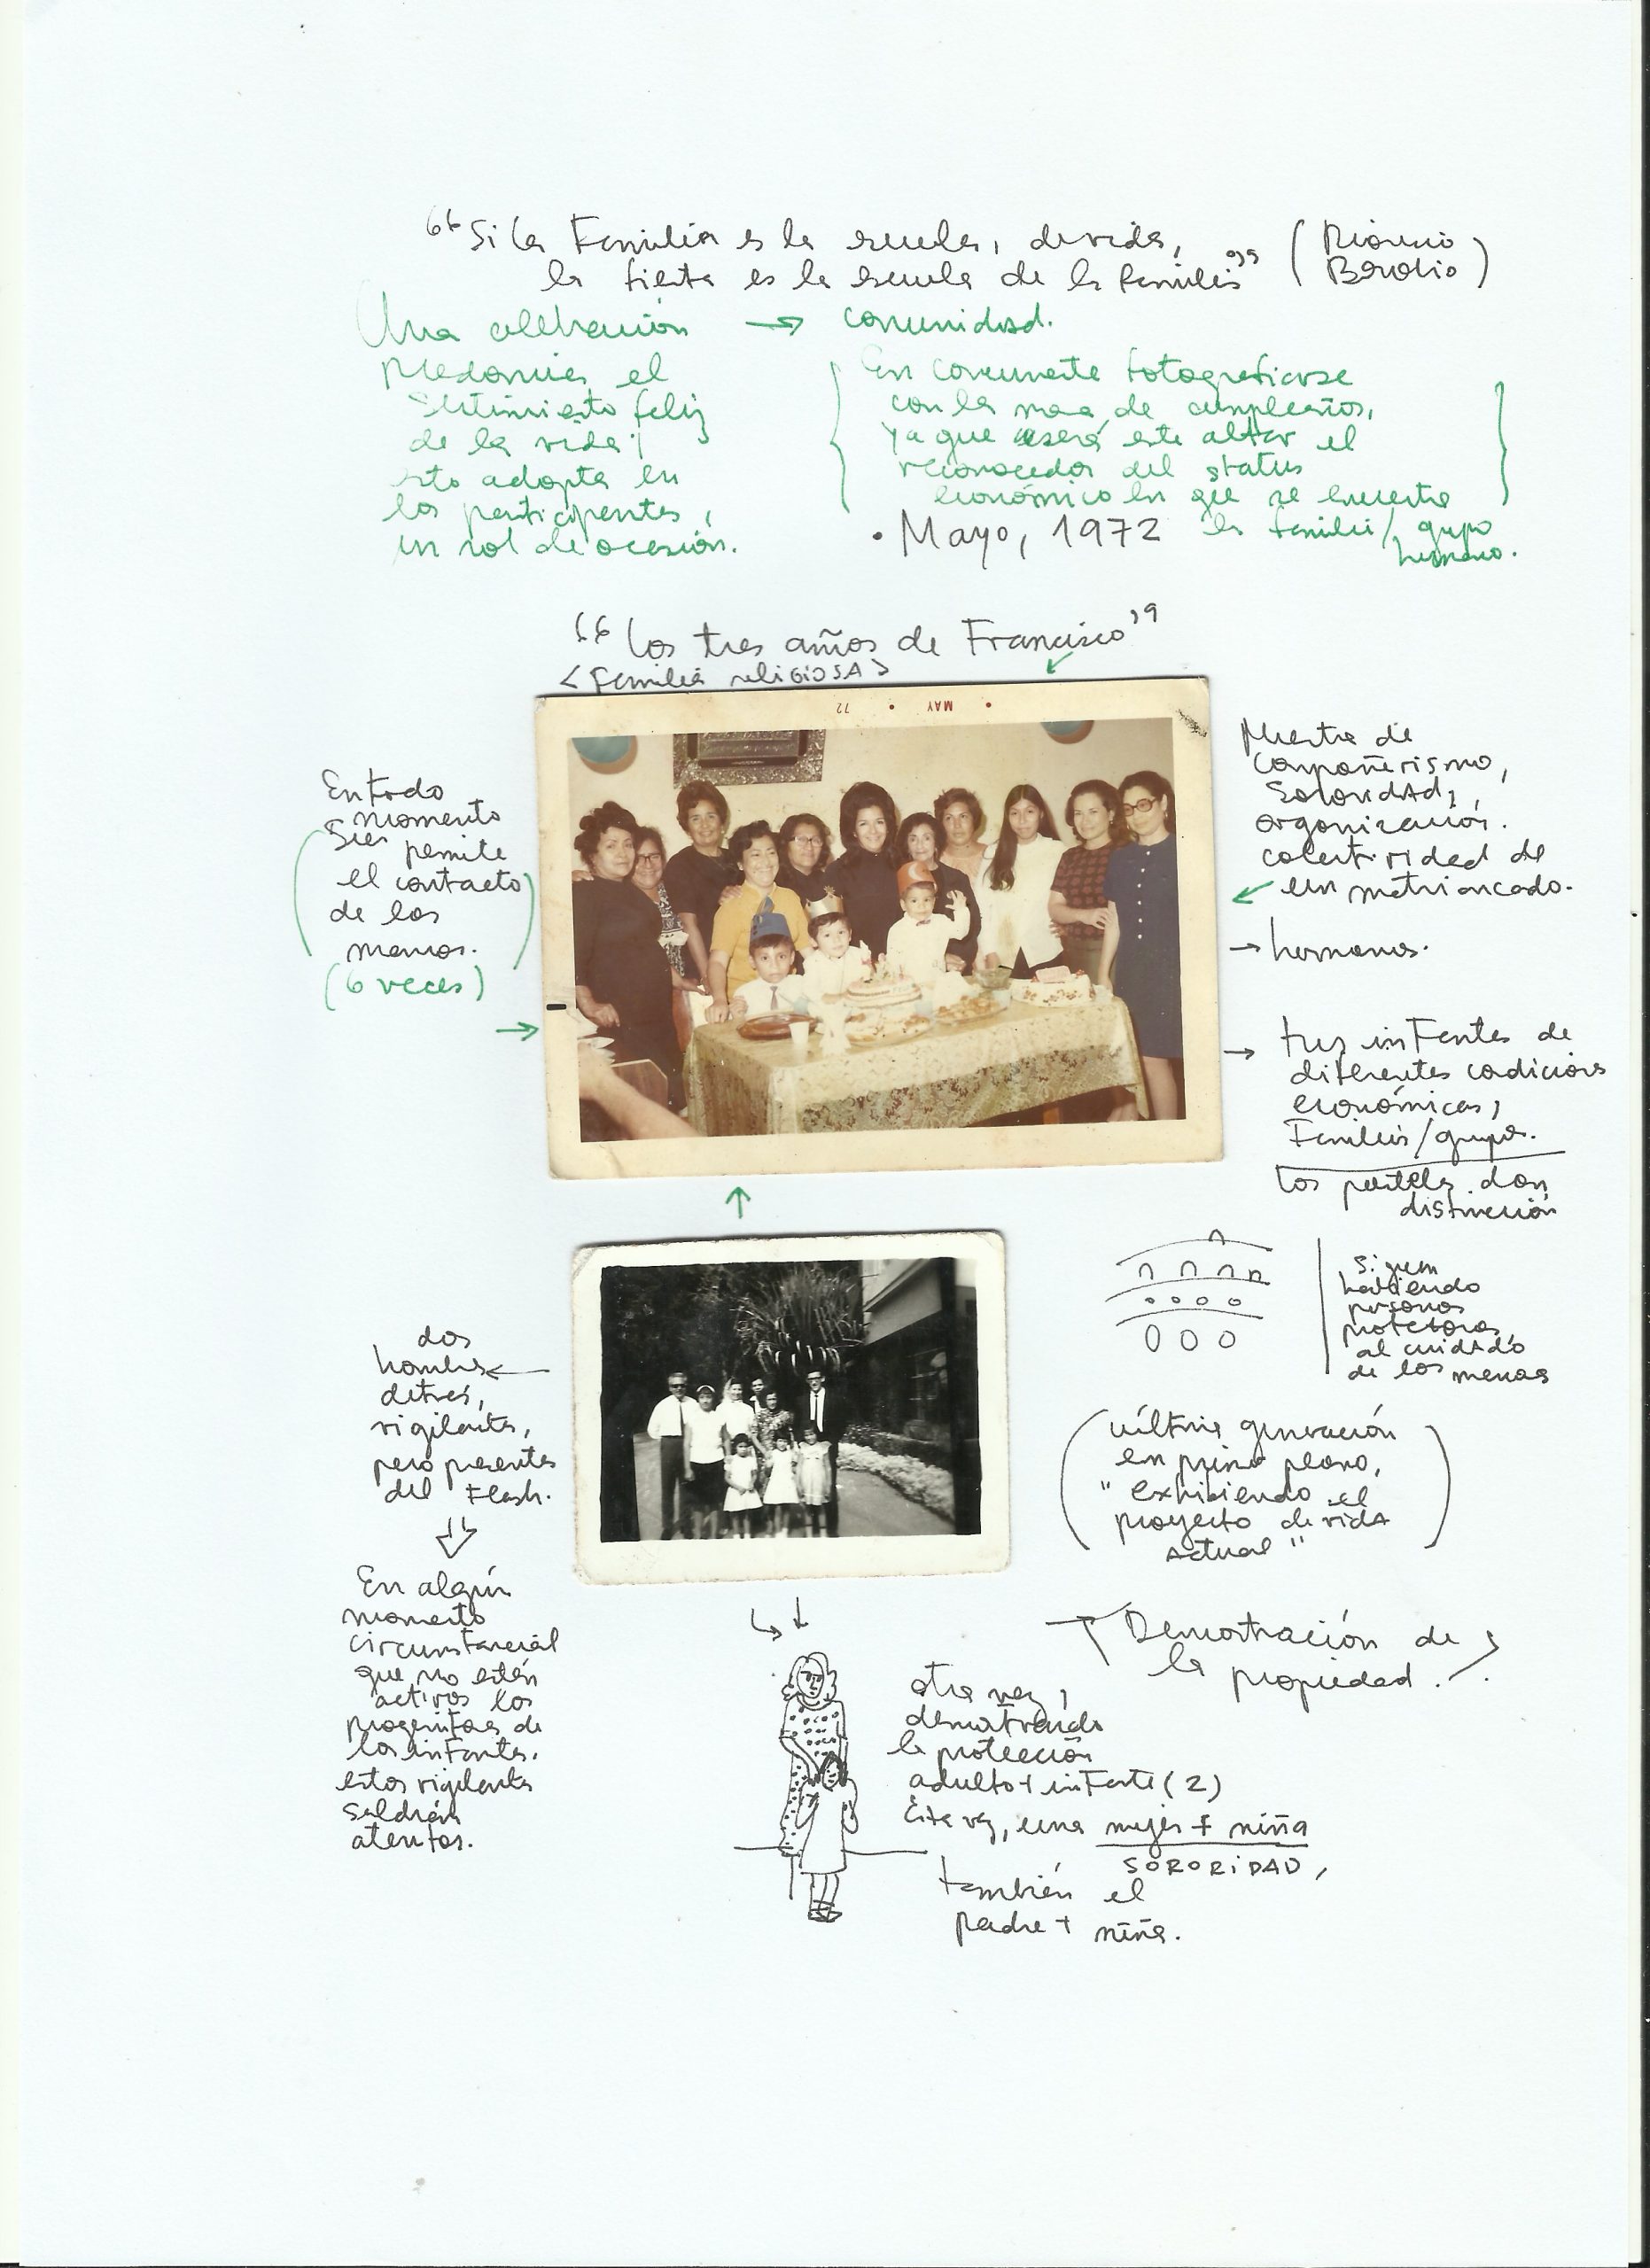 "Si la Familia es la escuela, de vida,
la fiesta es la escuela de la familia" (
Una celebración → comunidad.
predomina el
sentimiento feliz
de la vida;
esto adopta en
los participantes,
un rol de ocasión.
En comunmente fotografiarse
con la mesa de cumpleaños,
ya que será este altar el
reconocedor del status
económico en que se encuentra
la familia/grupo
humano.
• Mayo, 1972
"Los tres años de Francisco"
<Familia religiosa>
MAY • 72
En todo
momento
se permite
el contacto
de las
manos.
(6 veces)
Muestra de
compañerismo,
Sororidad,
organización.
colectividad de
un matriarcado.
→ hermanas.
→ tres infantes de
diferentes condiciones
económicas,
Familia/grupo.
Los pasteles dan
distinción
Siguen
habiendo
personas
protectoras
al cuidado
de los menores
dos
hombres
detrás,
vigilantes,
pero presentes
del Flash.
(última generación
en primer plano,
"exhibiendo el
proyecto de vida
actual")
En algún
momento
circunstancial
que no estén
activos los
progenitores de
los infantes,
estos vigilantes
saldrán
atentos.
Demostración de
la propiedad.
otra vez,
demostrando
la protección
adulto + infante (2)
Esta vez, una mujer + niña
SORORIDAD,
también el
padre + niña.